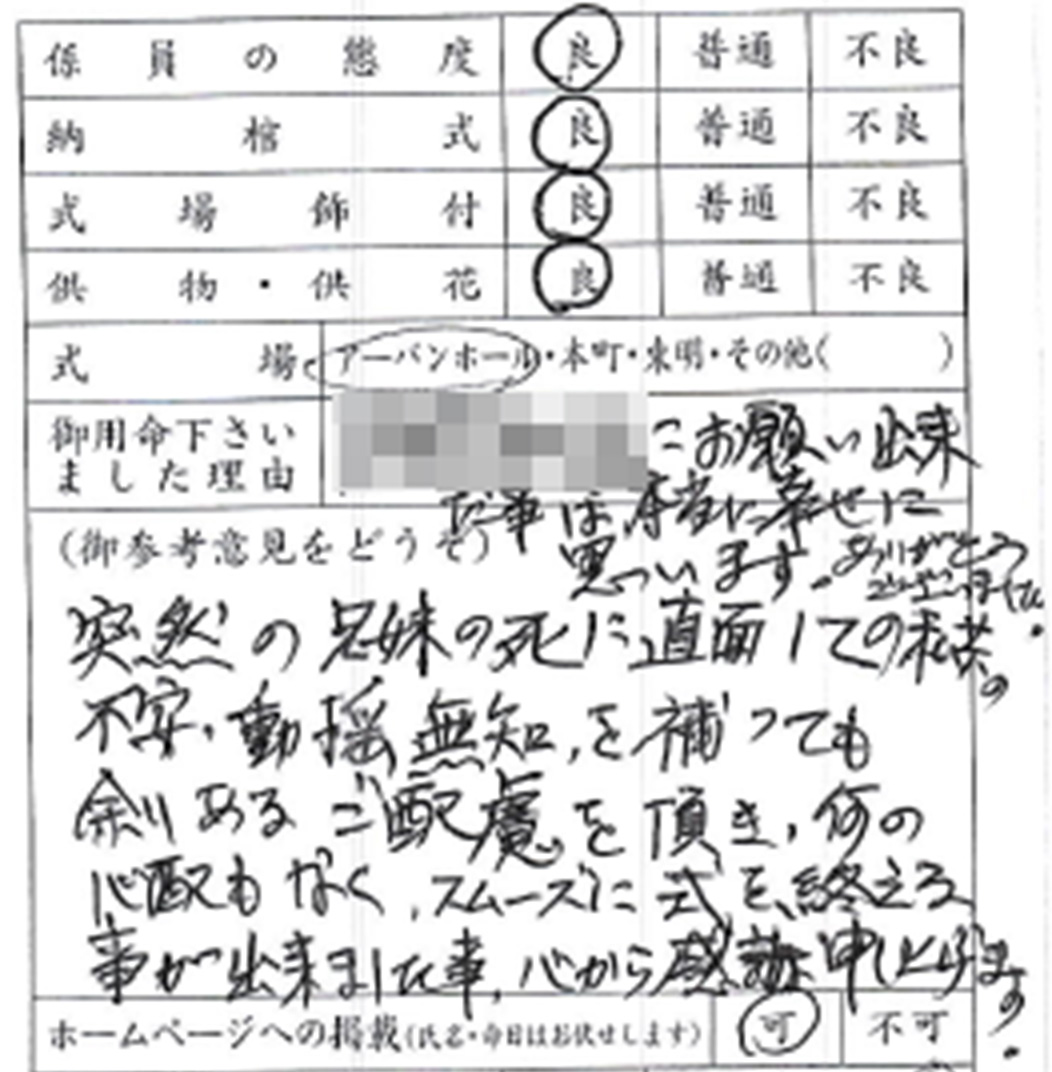 係員の態度 良 普通 不良
納棺式 良 普通 不良
式場飾付 良 普通 不良
供物・供花 良 普通 不良
式場 アーバンホール・本町・東明・その他( )
御用命下さい
ました理由
にお願い出来
た事は、本当に幸せに
思っいます。ありがとう
ございました。
(御参考意見をどうぞ)
突然の兄妹の死に直面しての私共の
不安、動揺、無知、を補っても
余りあるご配慮を頂き、何の
心配もなく、スムーズに式を、終える
事が出来ました事、心から感謝申し上げます。
ホームページへの掲載(氏名・命日はお伏せします) 可 不可